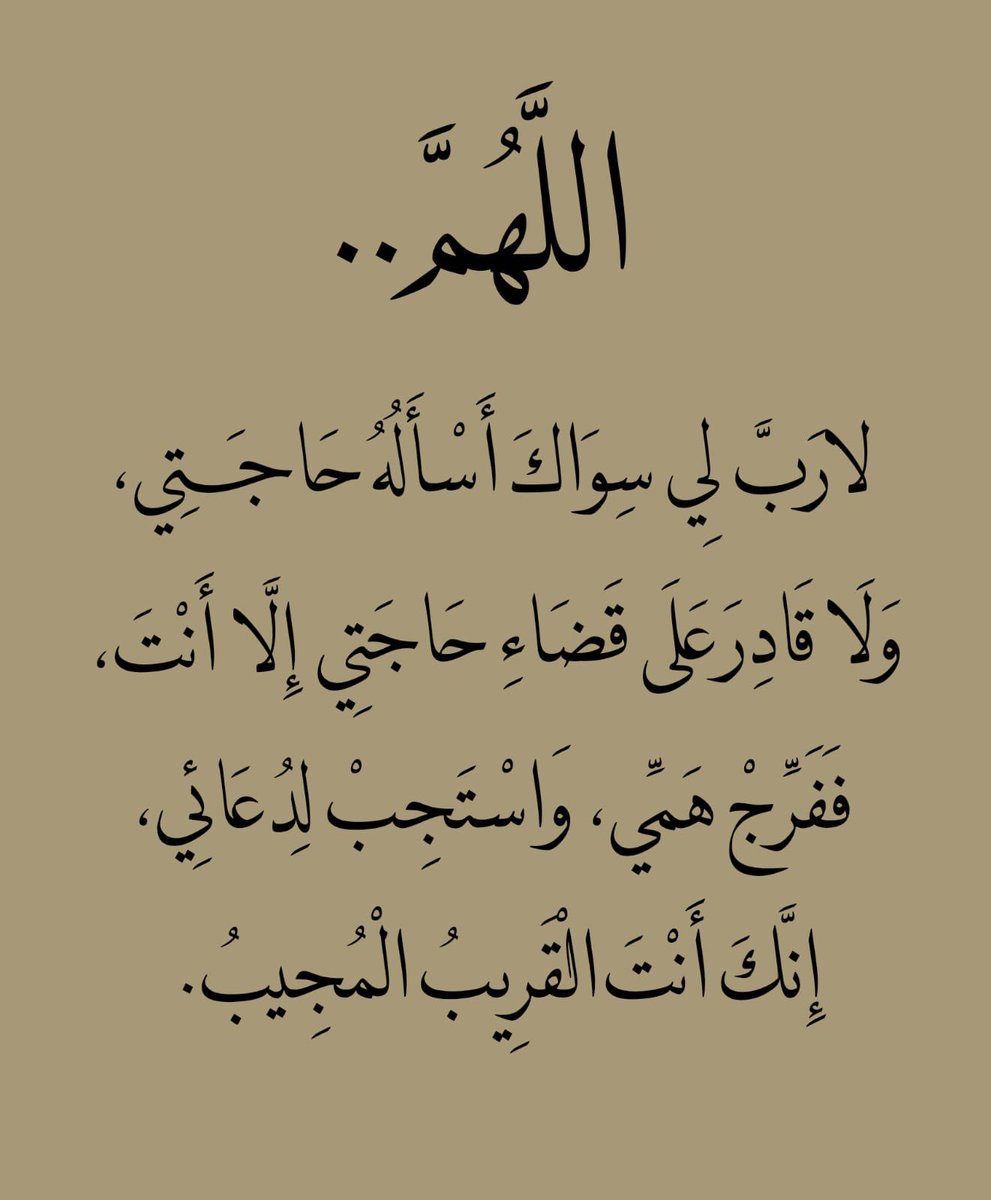 اللَّهُمَّ..
لا رَبَّ لِي سِوَاكَ أَسْأَلُهُ حَاجَتِي،
وَلَا قَادِرَ عَلَى قَضَاءِ حَاجَتِي إِلَّا أَنْتَ،
فَفَرِّجْ هَمِّي، وَاسْتَجِبْ لِدُعَائِي،
إِنَّكَ أَنْتَ الْقَرِيبُ الْمُجِيبُ.